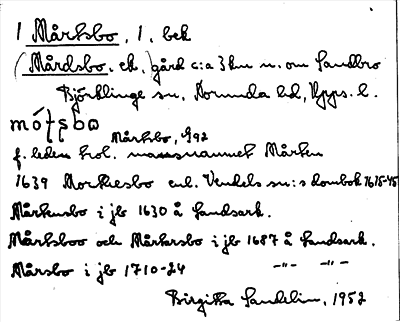 1 Mårtsbo, 1. bek
(Mårdsbo, ek.) gård c:a 3 km n. om Sandbro
Björklinge sn, Norunda hd, Upps. l.
Mårtsbo, G92
f. leden trol. mansnamnet Mårten
1639 Morthesbo enl. Vendels sn:s dombok 1615-45
Mårtensbo i jb 1630 å landsark.
Mårtsboo och Mårtarsbo i jb 1687 å landsark.
Mårsbo i jb 1710-24 -"- -"-
Birgitta Sandelin, 1952